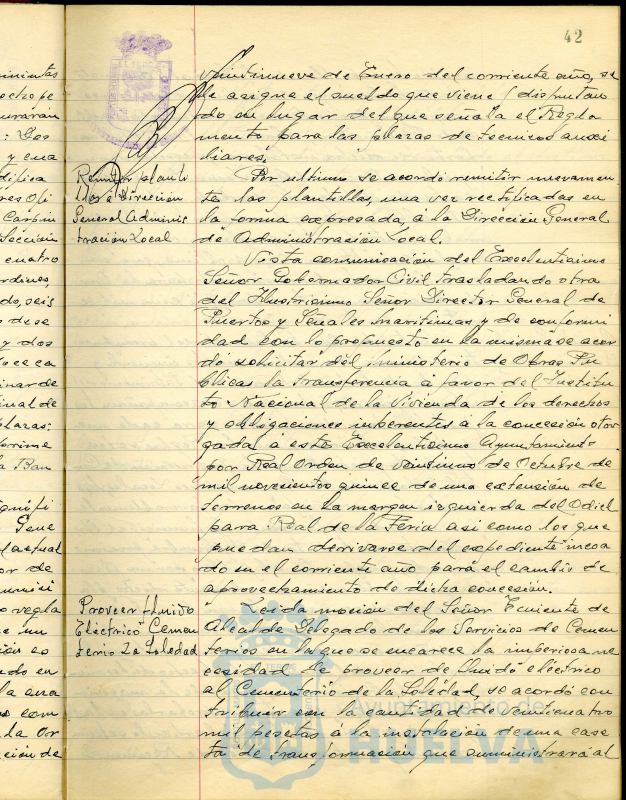 42
veintinueve de Enero del corriente año, se
le asigne el sueldo que viene disfrutan
do en lugar del que señala el Regla
mento para las plazas de tecnicos auxi
liares.
Remitir planti
llas a Direccion
General Adminis
tración Local
Por ultimo se acordó remitir nuevamen
te las plantillas, una vez rectificadas en
la forma expresada, a la Dirección General
de Administración Local.
Vista comunicación del Excelentisimo
Señor Gobernador Civil trasladando otra
del Ilustrisimo Señor Director General de
Puertos y Señales Maritimas y de conformi
dad con lo propuesto en la misma se acor
dó solicitar del Ministerio de Obras Pu
blicas la transferencia a favor del Institu
to Nacional de la Vivienda de los derechos
y obligaciones inherentes a la concesión otor
gada a este Excelentisimo Ayuntamiento
por Real Orden de veintiuno de Octubre de
mil novecientos quince de una extensión de
terrenos en la margen izquierda del Odiel
para Real de la Feria asi como los que
puedan derivarse del expediente incoa
do en el corriente año para el cambio de
aprovechamiento de dicha concesión.
Proveer fluido
Eléctrico Cemen
terio La Soledad
Leida moción del Señor Teniente de
Alcalde Delegado de los Servicios de Cemen
terios en la que se encarece la imperiosa ne
cesidad de proveer de fluido eléctrico
al Cementerio de la Soledad, se acordó con
tribuir con la cantidad de veinticuatro
mil pesetas a la instalación de una case
ta de transformación que suministrará al
Ayuntamiento de
HUELVA